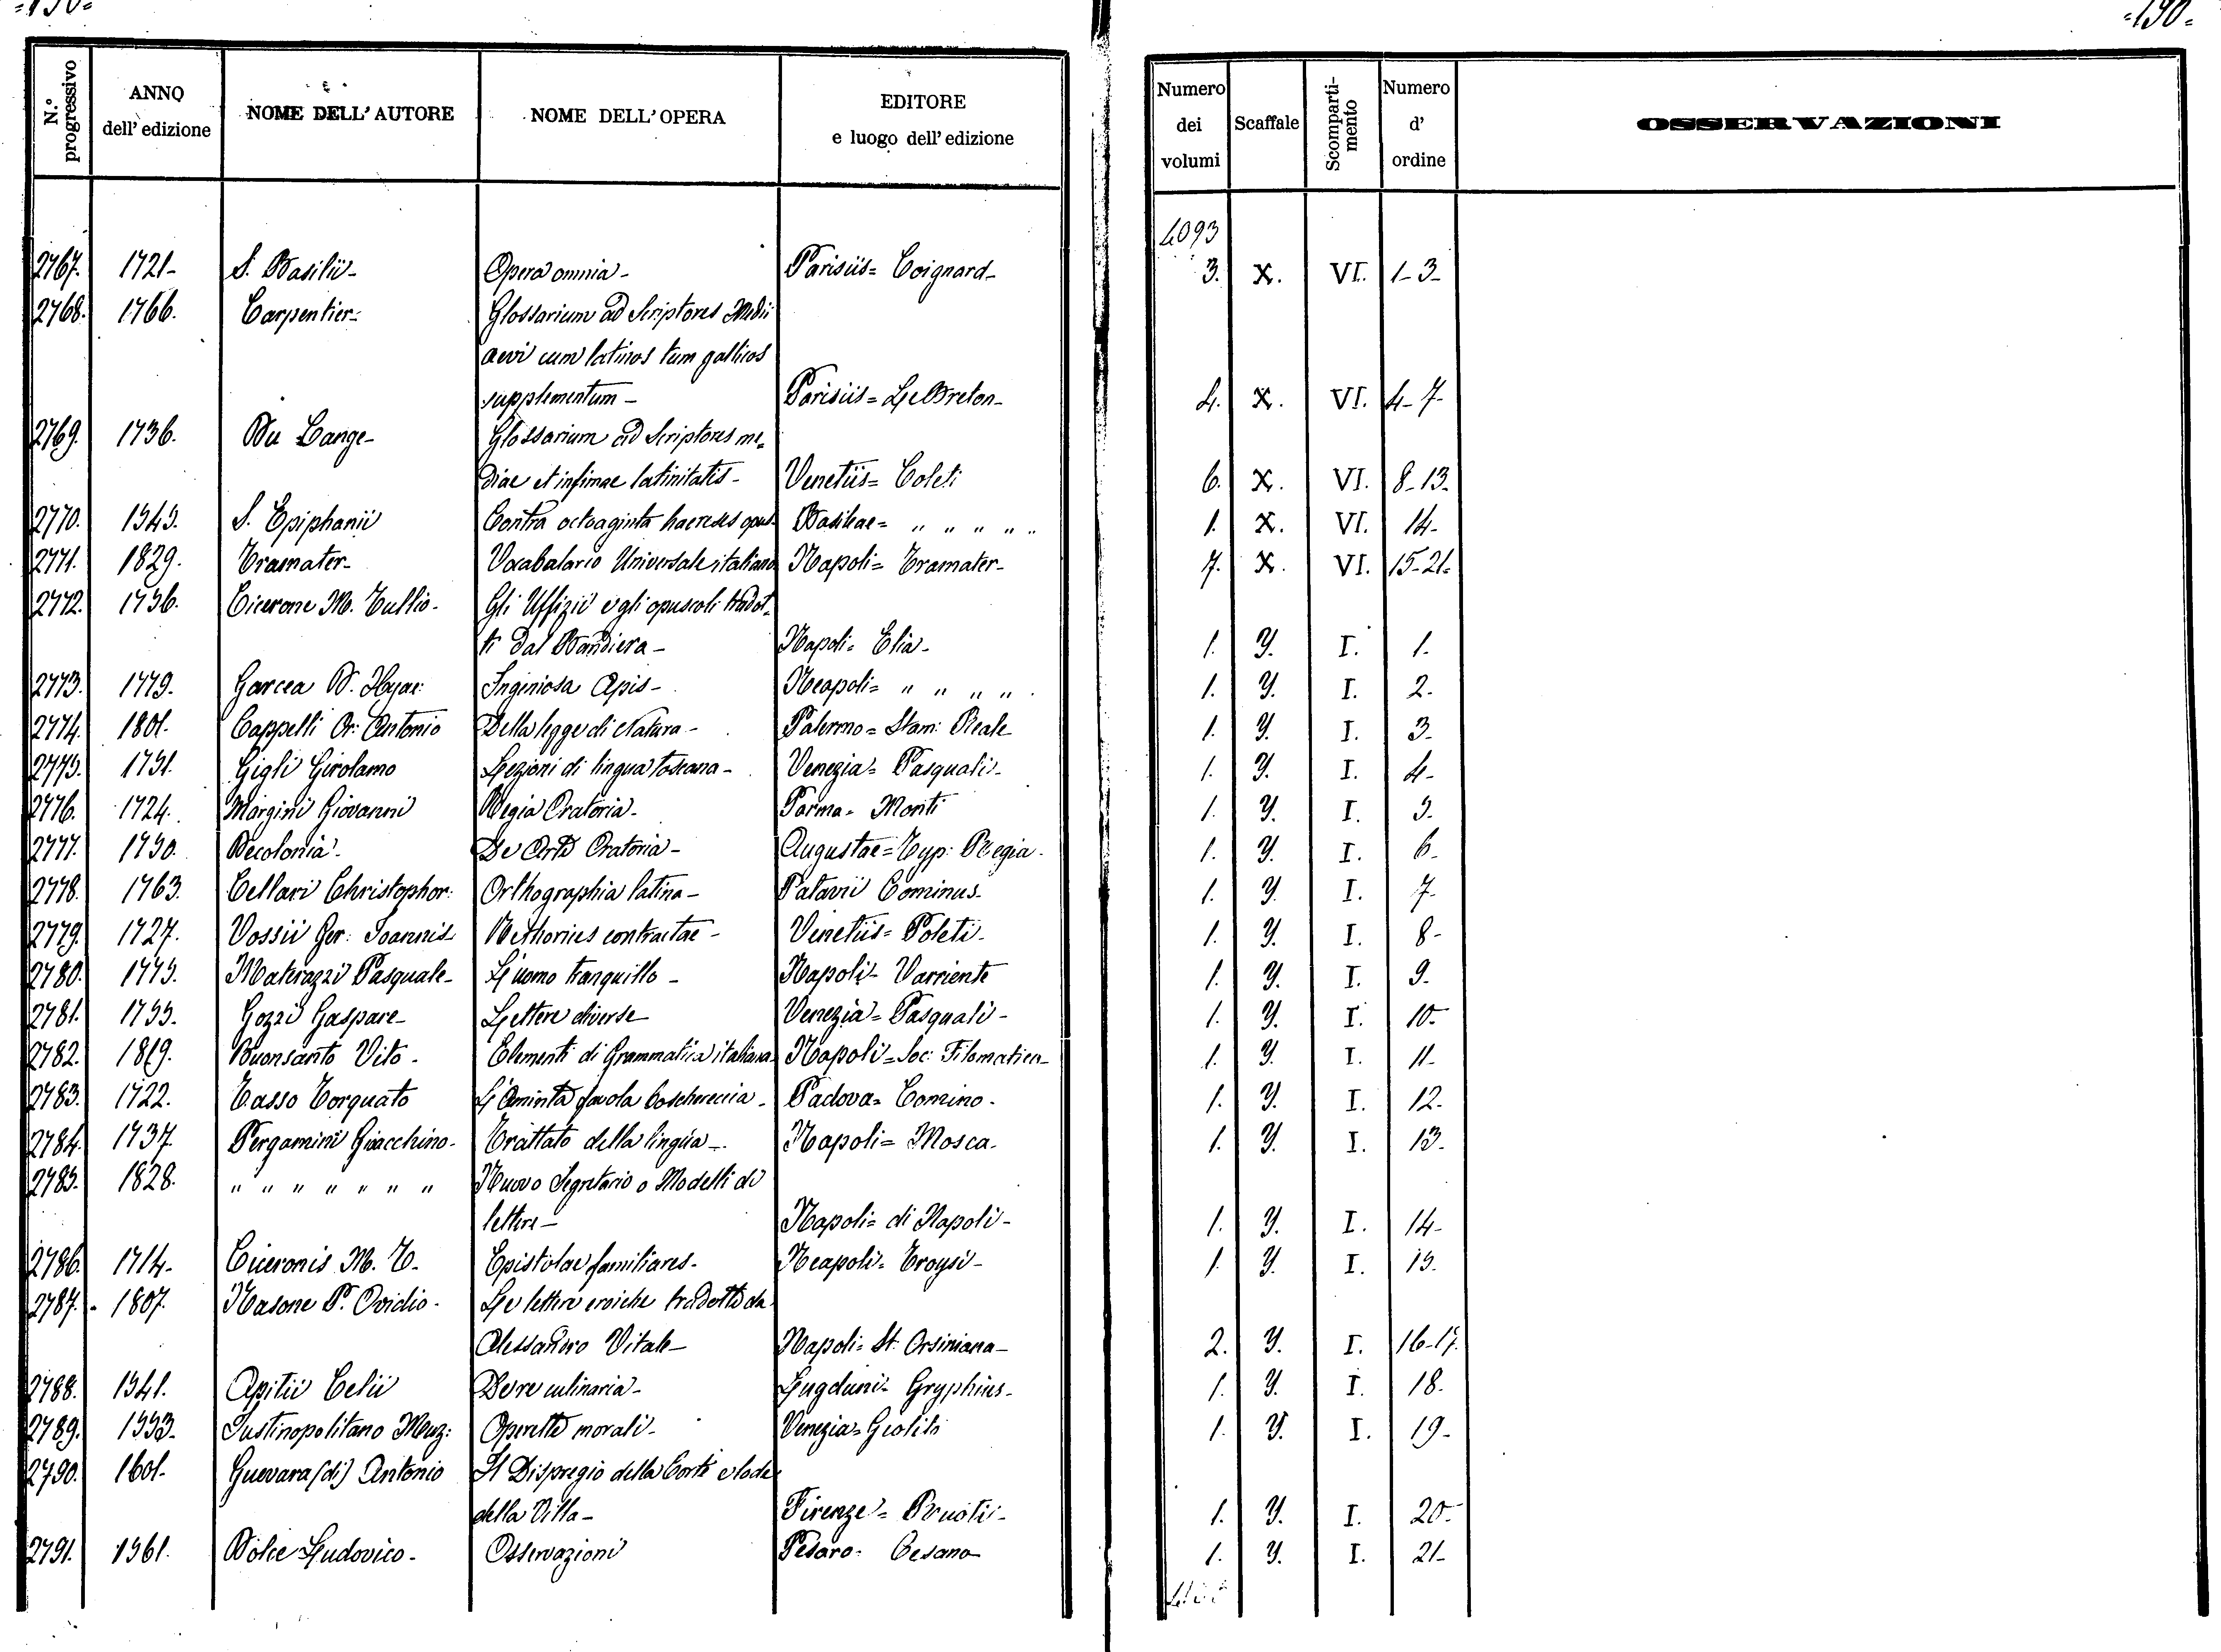 =190= =190=
N.° progressivo ANNO dell' edizione NOME DELL' AUTORE NOME DELL' OPERA EDITORE e luogo dell' edizione Numero dei volumi Scaffale Scomparti-mento Numero d' ordine OSSERVAZIONI
4093
2767. 1721- S. Basilii- Opera omnia- Parisiis= Coignard- 3. X. VI. 1-3-
2768. 1766. Carpentier- Glossarium ad Scriptores Medii
aevi cum latinos tum gallicos
supplementum- Parisiis= Le Breton- 4. X. VI. 4-7-
2769. 1736. Du Cange- Glossarium ad Scriptores me=
diae et infimae latinitatis- Venetiis= Coleti 6. X. VI. 8-13.
2770. 1543. S. Epiphanii Contra octoaginta haereses opus- Basileae= " " " " " 1. X. VI. 14-
2771. 1829. Tramater- Vocabalario Universale italiano Napoli= Tramater- 7. X. VI. 15-21-
2772. 1756. Cicerone M. Tullio- Gli Uffizii e gli opuscoli tradot=
ti dal Bandiera- Napoli= Elia- 1. Y. I. 1.
2773. 1779. Garcea D. Hyac: Ingeniosa Apis- Neapoli= " " " " 1. Y. I. 2.
2774. 1801. Cappelli Or: Antonio Della legge di Natura- Palermo= Stam: Reale 1. Y. I. 3.
2775. 1751. Gigli Girolamo Lezioni di lingua toscana- Venezia= Pasquali- 1. Y. I. 4-
2776. 1724. Margini Giovanni Regia Oratoria- Parma- Monti 1. Y. I. 5.
2777. 1750. Decolonia- De Arte Oratoria- Augustae= Typ: Regia- 1. Y. I. 6-
2778. 1763. Cellari Christophor: Orthographia latina- Patavii Cominus- 1. Y. I. 7-
2779. 1727. Vossii Ger: Joannis- Rethorices contractae- Venetiis= Poleti- 1. Y. I. 8-
2780. 1775. Materazzi Pasquale- L'uomo tranquillo- Napoli- Varriente 1. Y. I. 9.
2781. 1755. Gozzi Gaspare- Lettere diverse Venezia= Pasquali- 1. Y. I. 10-
2782. 1819. Buonsanto Vito- Elementi di Grammatica italiana- Napoli= Soc: Filomatica- 1. Y. I. 11-
2783. 1722. Tasso Torquato L'Aminta favola boschereccia- Padova= Comino- 1. Y. I. 12-
2784. 1737. Pergamini Giacchino- Trattato della lingua- Napoli= Mosca- 1. Y. I. 13-
2785. 1828. " " " " " " " Nuovo Segretario o Modelli di
lettere- Napoli= di Napoli- 1. Y. I. 14-
2786. 1714- Ciceronis M. T- Epistolae familiares- Neapoli= Troysi- 1. Y. I. 15.
2787. 1807. Nasone P. Ovidio- Le lettere eroiche tradotte da
Alessandro Vitale- Napoli= St: Orsiniana- 2. Y. I. 16-17.
2788. 1541. Apitii Celii De re culinaria- Lugduni- Gryphius- 1. Y. I. 18.
2789. 1553. Justinopolitano Muz: Operette morali- Venezia= Gioliti 1. Y. I. 19-
2790. 1601- Guevara (di) Antonio Il Dispregio della Corte e lode
della Villa- Firenze= 1. Y. I. 20-
2791. 1561. Dolce Ludovico- Osservazioni Pesaro- Cesano 1. Y. I. 21-